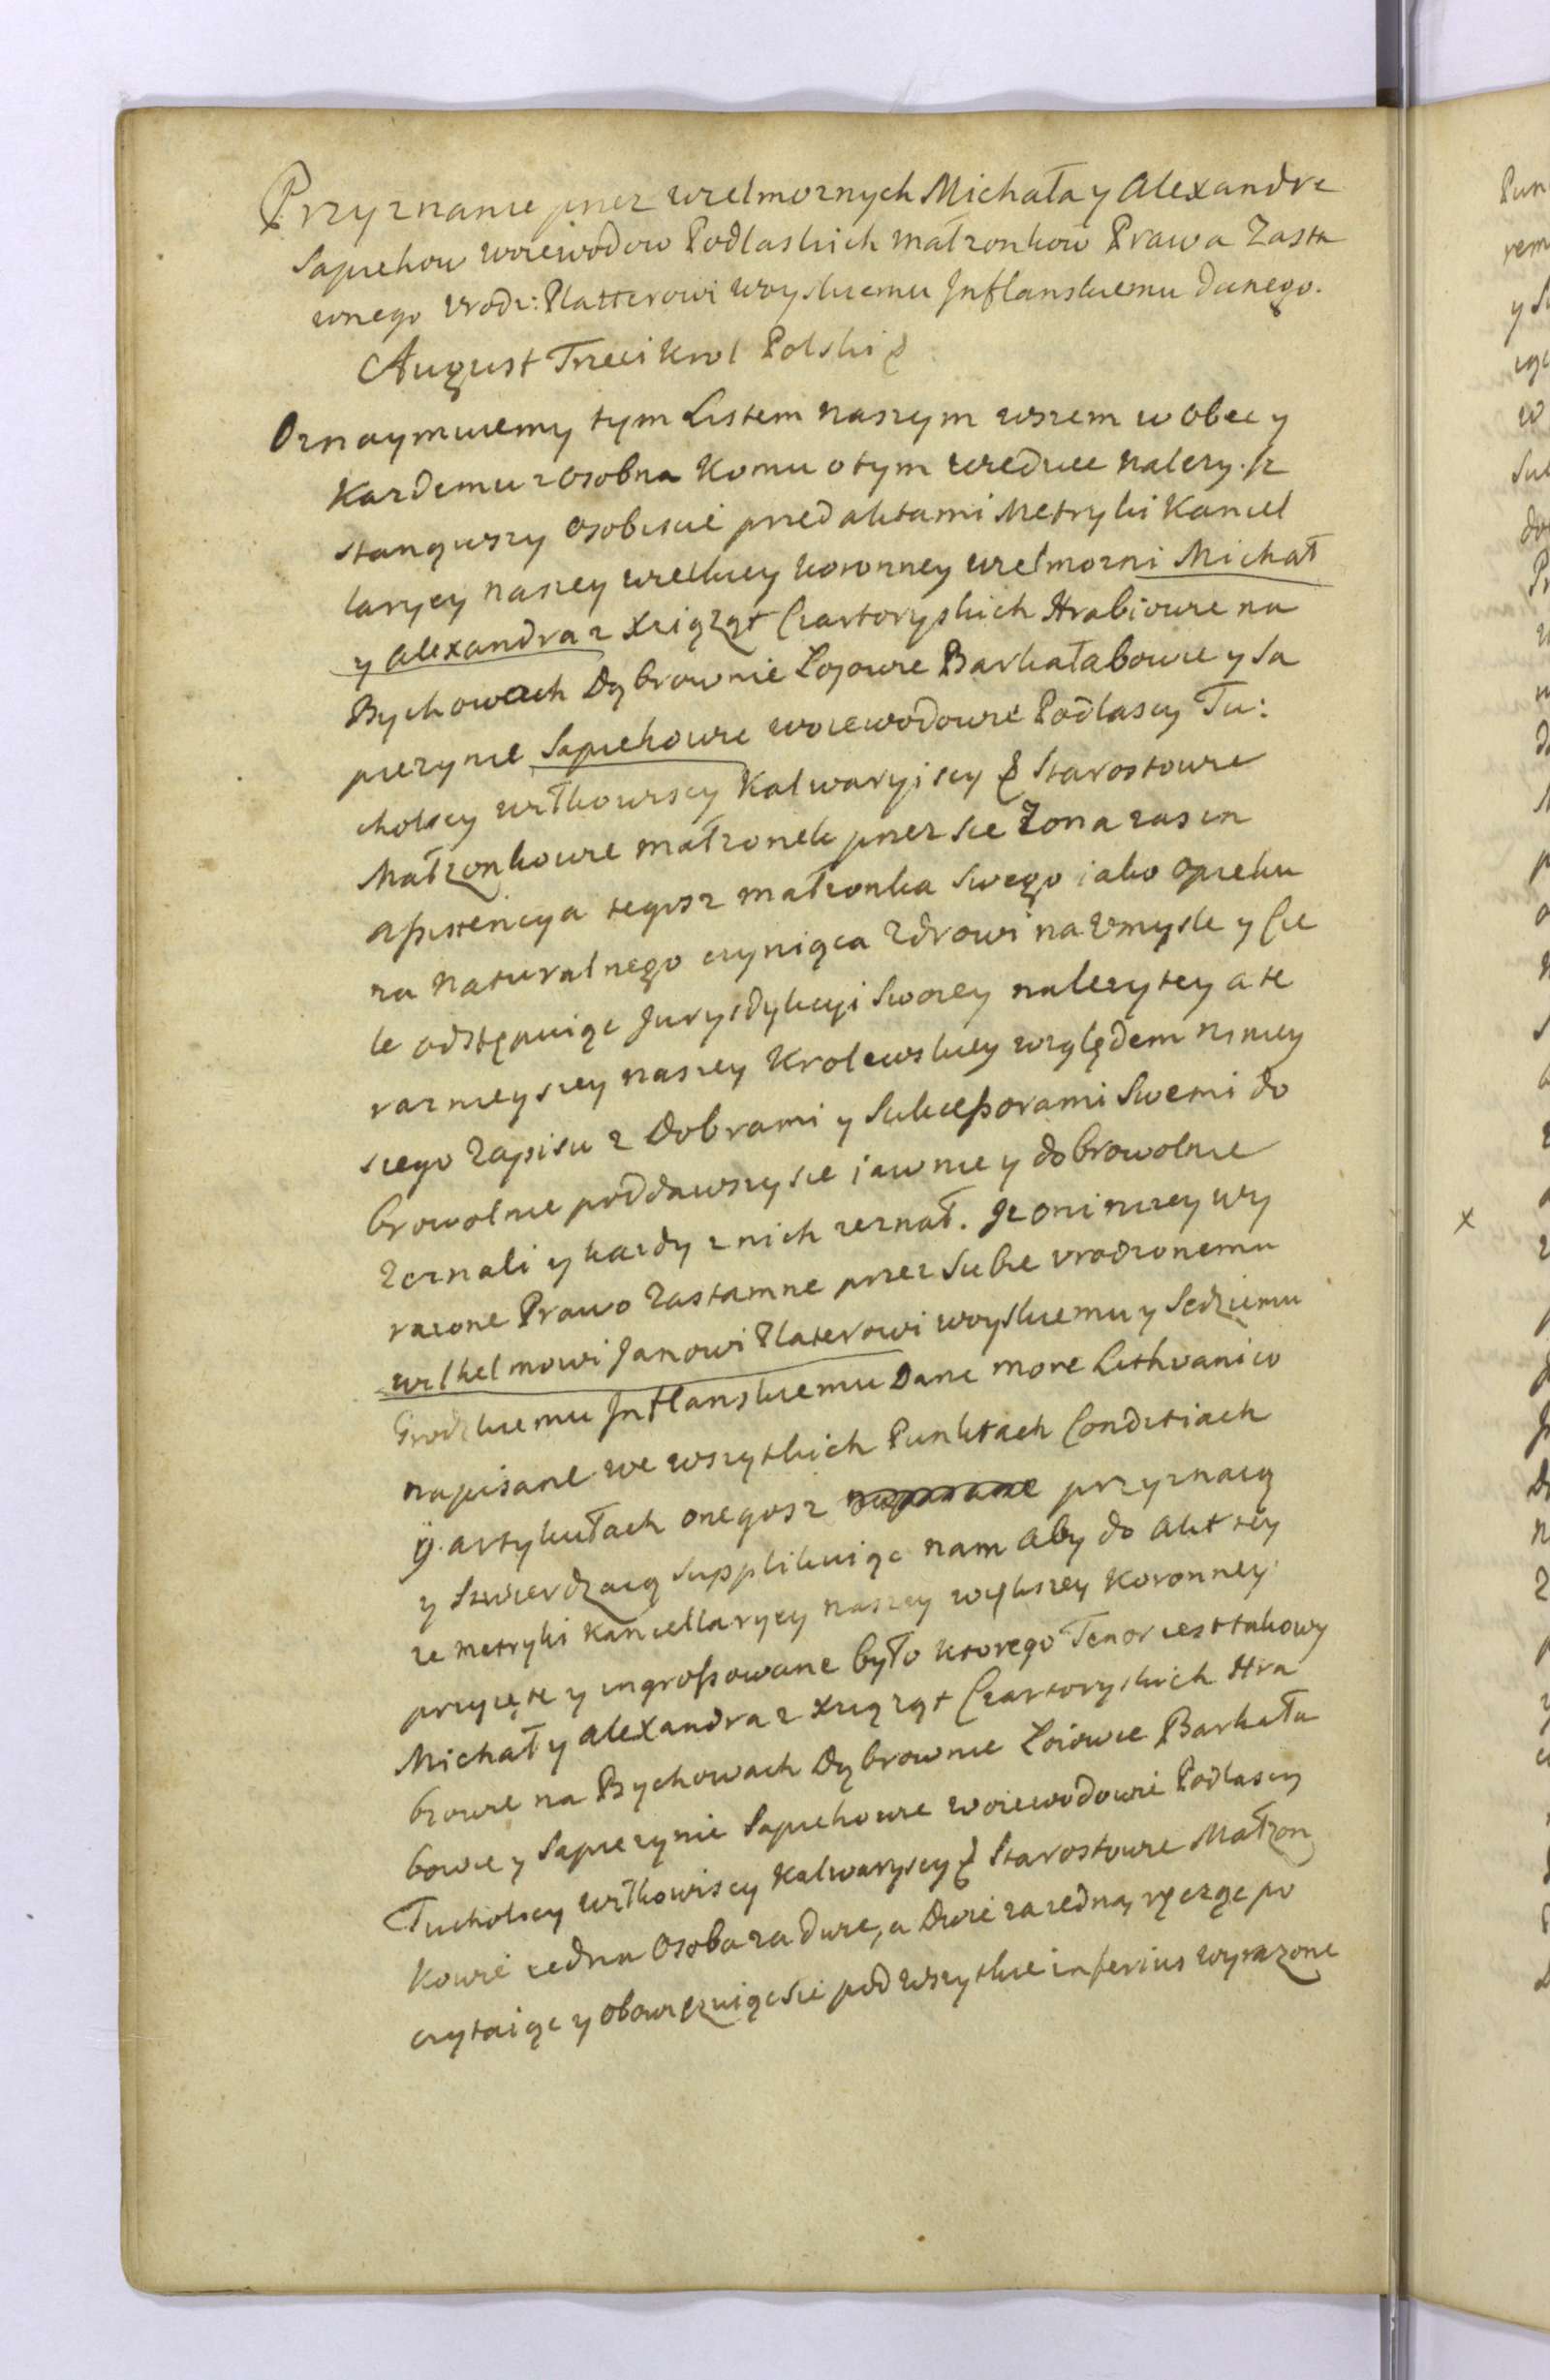 Przyznanie przez wielmoznych Michała y Alexandre
Sapiehow woiewodow Podlaskich małzonkow Prawa Zasta
wnego Vrodz: Platterowi woyskiemu Inflanskiemu danego.
August Trzeci Krol Polski &
Oznaymuiemy tym Listem naszym wszem w obec y
Kazdemu z osobna komu o tym wiedziec nalezy. Iz
stanąwszy osobiscie przed aktami Metryki Kancel
laryey naszey wielkiey koronney wielmozni Michał
y Alexandra z Xiążąt Czartoryskich Hrabiowie na
Bychowach Dąbrownie Łojowie Barkałabowie y Sa
piezynie Sapiehowie woiewodowie Podlascy Tu:
cholscy wiłkowiscy Kalwaryiscy & Starostowie
Małżonkowie małzonek przez sie Zona zas in
assistencya tegosz małzonka swego iako opieku
na naturalnego czyniąca zdrowi na Vmysle y Cie
le odstępuiąc Jurysdykcyi swoiey nalezytey a te
raznieyszey naszey Krolewskiey względem niniey
szego Zapisu z Dobrami y Sukcessorami swemi do
browolnie poddawszy sie iawnie y dobrowolnie
Zeznali y kazdy z nich zeznał. Iz oni nizey wy
razone Prawo Zastawne przez siebie vrodzonemu
wilhelmowi Janowi Platerowi woyskiemu y Sędziemu
Grodzkiemu Inflanskiemu Dane more Lithvanico
napisane we wszytkich Punktach Conditiach
y artykułach onegosz przyznaią
y stwierdzaią supplikuiąc nam aby do akt tey
ze metryki kancellaryey naszey większey koronney
przyięte y ingrossowane było ktorego Tenor iest takowy
Michał y alexandra z Xiążąt Czartoryskich Hra
biowie na Bychowach Dąbrownie Łoiowie Barkała
bowie y Sapiezynie Sapiehowie woiewodowie Podlascy
Tucholscy wiłkowiscy Kalwaryscy & Starostowie Małżon
kowie iedna osoba za dwie, a Dwie za iedną ręcząc po
czytaiąc y obowięzuiąc sie pod wszytkie inferius wyrażone